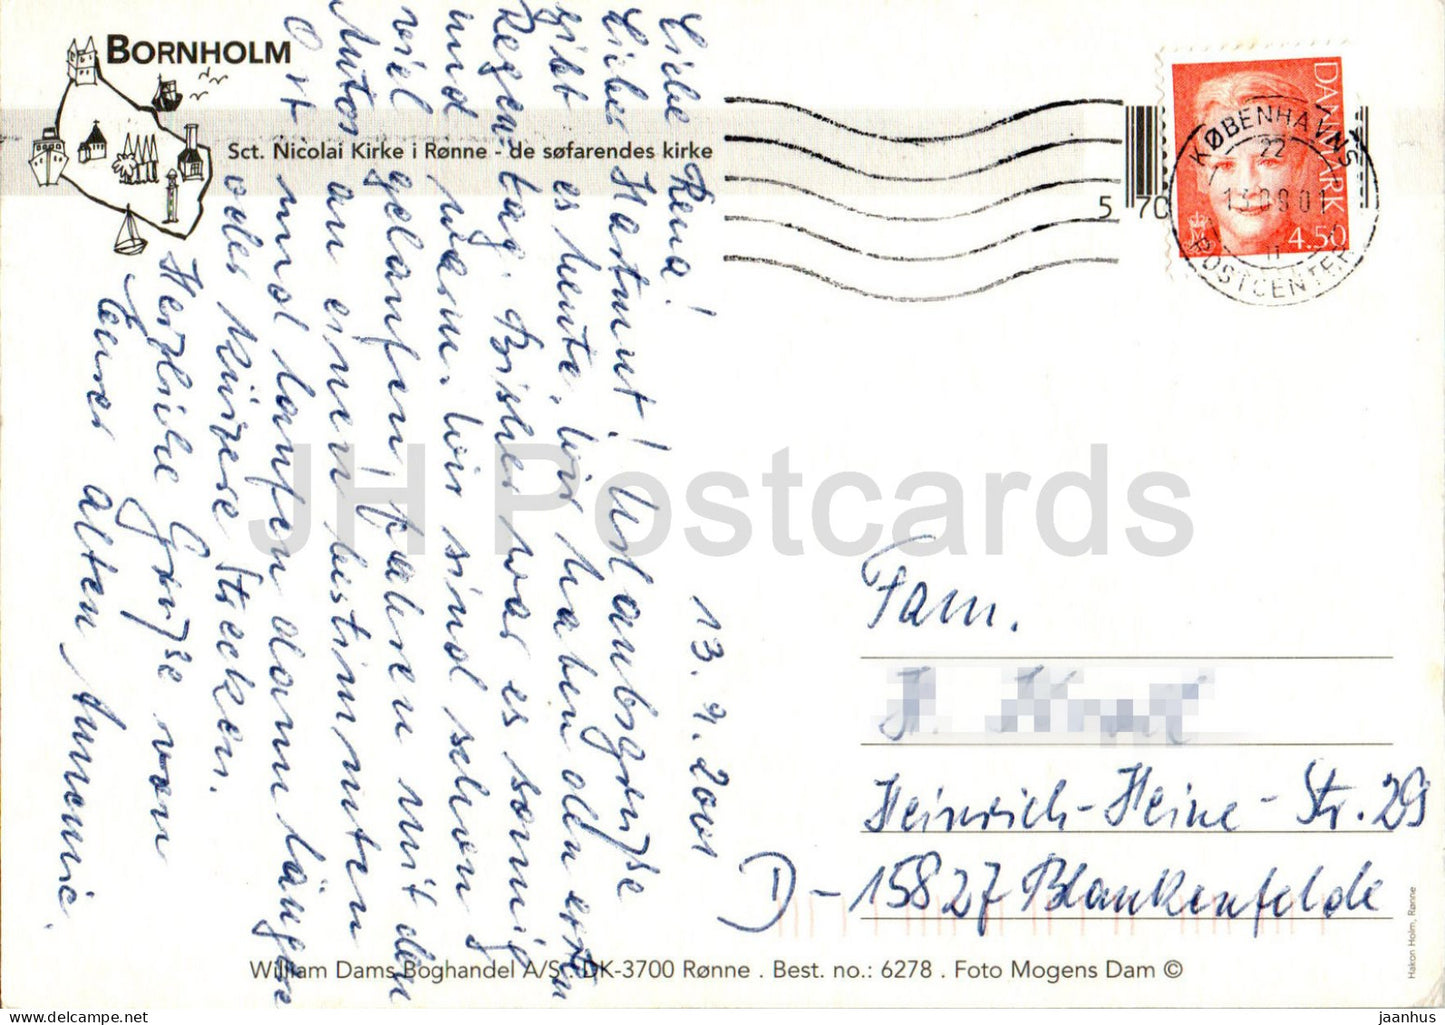 BORNHOLM
Sct. Nicolai Kirke i Rønne - de søfarendes kirke
5 70
DANMARK
4.50
KØBENHAVNS
22
13.09.01
POSTCENTER
13. 9. 2001
Liebe Rena!
Lieber Hartmut! Urlaubsgrüße
gibt es heute, wir haben den ersten
Regentag. Bisher war es sonnig
und warm. Wir sind schon
viel gelaufen, fahren mit den
Autos an einen bestimmten
Ort und laufen dann längere
oder kürzere Strecken.
Herzliche Grüße von
Eurer alten
Fam.
Heinrich-Heine-Str. 29
D-15827 Blankenfelde
William Dams Boghandel A/S . DK-3700 Rønne . Best. no.: 6278 . Foto Mogens Dam ©
Hakon Holm, Rønne
JH Postcards
jaanhus